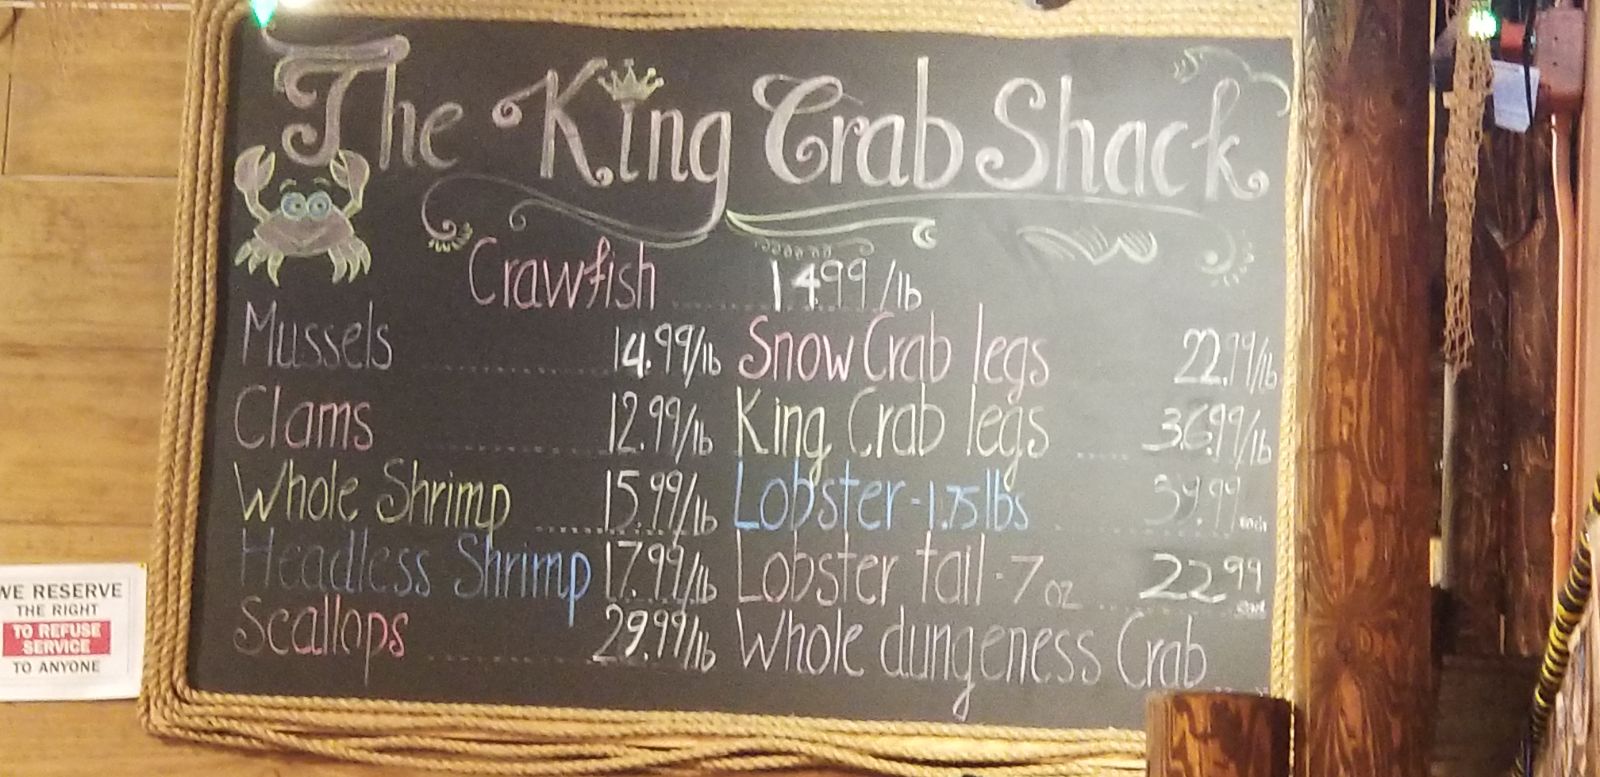 The King Crab Shack
Crawfish ........ 14.99/lb
Mussels ........ 14.99/lb
Clams ........ 12.99/lb
Whole Shrimp ........ 15.99/lb
Headless Shrimp 17.99/lb
Scallops ........ 29.99/lb
Snow Crab legs 22.99/lb
King Crab legs .... 36.99/lb
Lobster - 1.75 lbs 39.99 each
Lobster tail - 7 oz ........ 22.99
Whole dungeness Crab ....
WE RESERVE
THE RIGHT
TO REFUSE
SERVICE
TO ANYONE